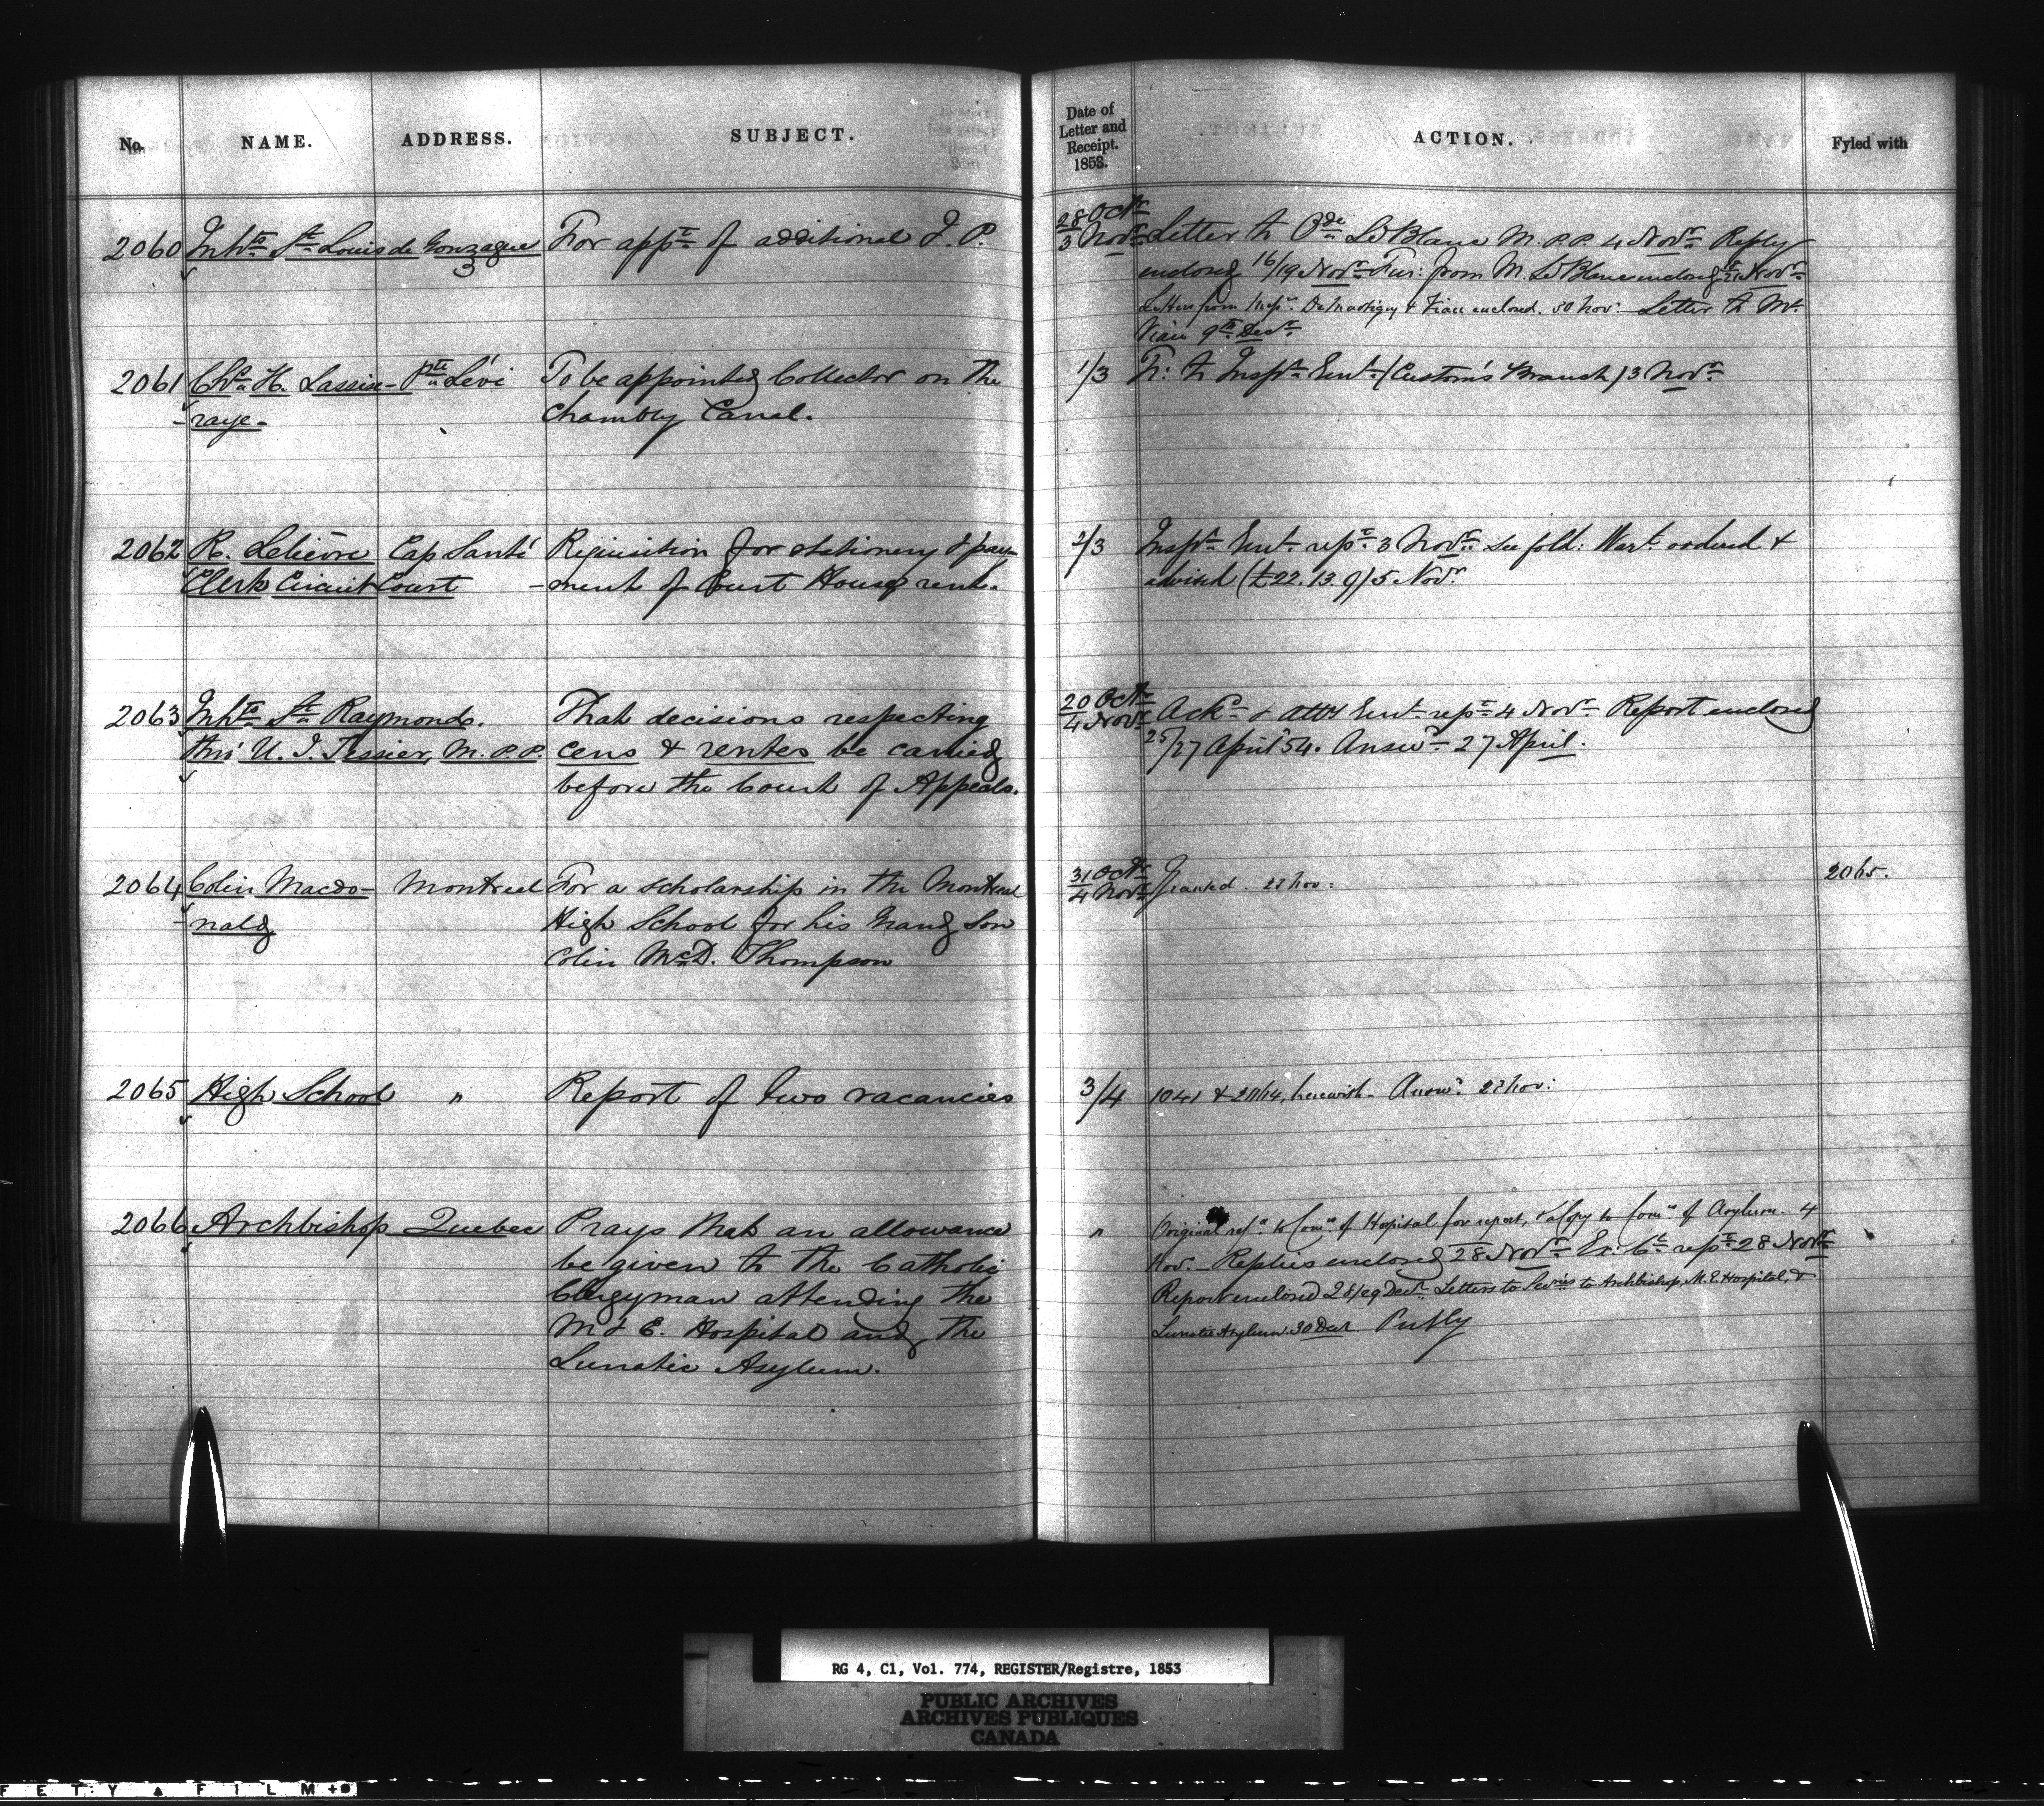 No. NAME. ADDRESS. SUBJECT.
Date of Letter and Receipt. 1853. ACTION. Fyled with
2060 Inhts St Louis de Gonzague For appt of additional J. P.
3
28 Octr
3 Novr Letter to Ode LeBlanc M.P.P. 4 Novr Reply
enclosed 16/19 Novr Fur: from M. LeBlanc enclosed Novr
Letters from Messrs & Viau enclosed. 30 Nov: Letter to Mr
Viau 9th Decr
2061 Chs H. Lassise- Pte Lévi To be appointed Collector on the
-raye- Chambly Canal.
1/3 R: to Inspr Genl (Customs Branch) 3 Novr
2062 R. Lelièvre Cap Santé Requisition for stationery & pay-
Clerk Circuit Court -ment of Court House rent.
2/3 Inspr Genl rept 3 Novr see fold: Wart ordered &
advised (£22.13.9) 5 Novr
2063 Inhts St Raymond.
thro' U. J. Tessier, M.P.P.
That decisions respecting
cens & rentes be carried
before the Court of Appeals.
20 Octr
4 Novr Ackd & Atty Genl rept 4 Novr Report enclosed
25/27 April 54. Answd 27 April.
2064 Colin Macdo- Montreal For a scholarship in the Montreal
-nald High School for his Grand Son
Colin McD. Thompson
31 Octr
4 Novr Granted. 22 Nov: 2065.
2065 High School " Report of two vacancies
3/4 1041 & herewith. Answd 22 Nov:
2066 Archbishop Quebec Prays that an allowance
be given to the Catholic
Clergyman attending the
M & E. Hospital and the
Lunatic Asylum.
" Original refd to Comrs of Hospital for report, & Copy to Comrs of Asylum. 4
Nov. Replies enclosed 28 Novr Ex: Cl rept 28 Novr
Report enclosed 28/29 Decr. Letters to to Archbishop, M.E. Hospital, &
Lunatic Asylum 30 Decr
RG 4, C1, Vol. 774, REGISTER/Registre, 1853
PUBLIC ARCHIVES
ARCHIVES PUBLIQUES
CANADA
FETY ▲ FILM